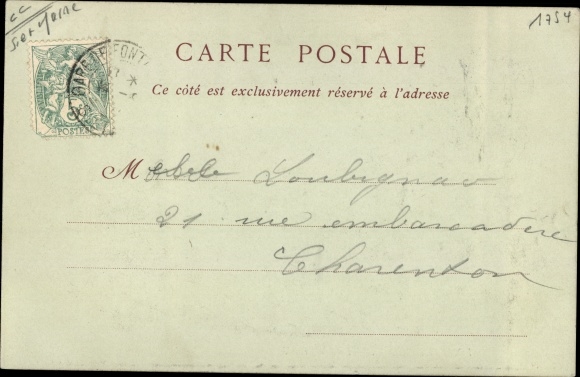 CC
1754
GARE DE FONT
5c
POSTES
CARTE POSTALE
Ce côté est exclusivement réservé à l'adresse
M Loubignac
21 rue embarcadère
Charenton